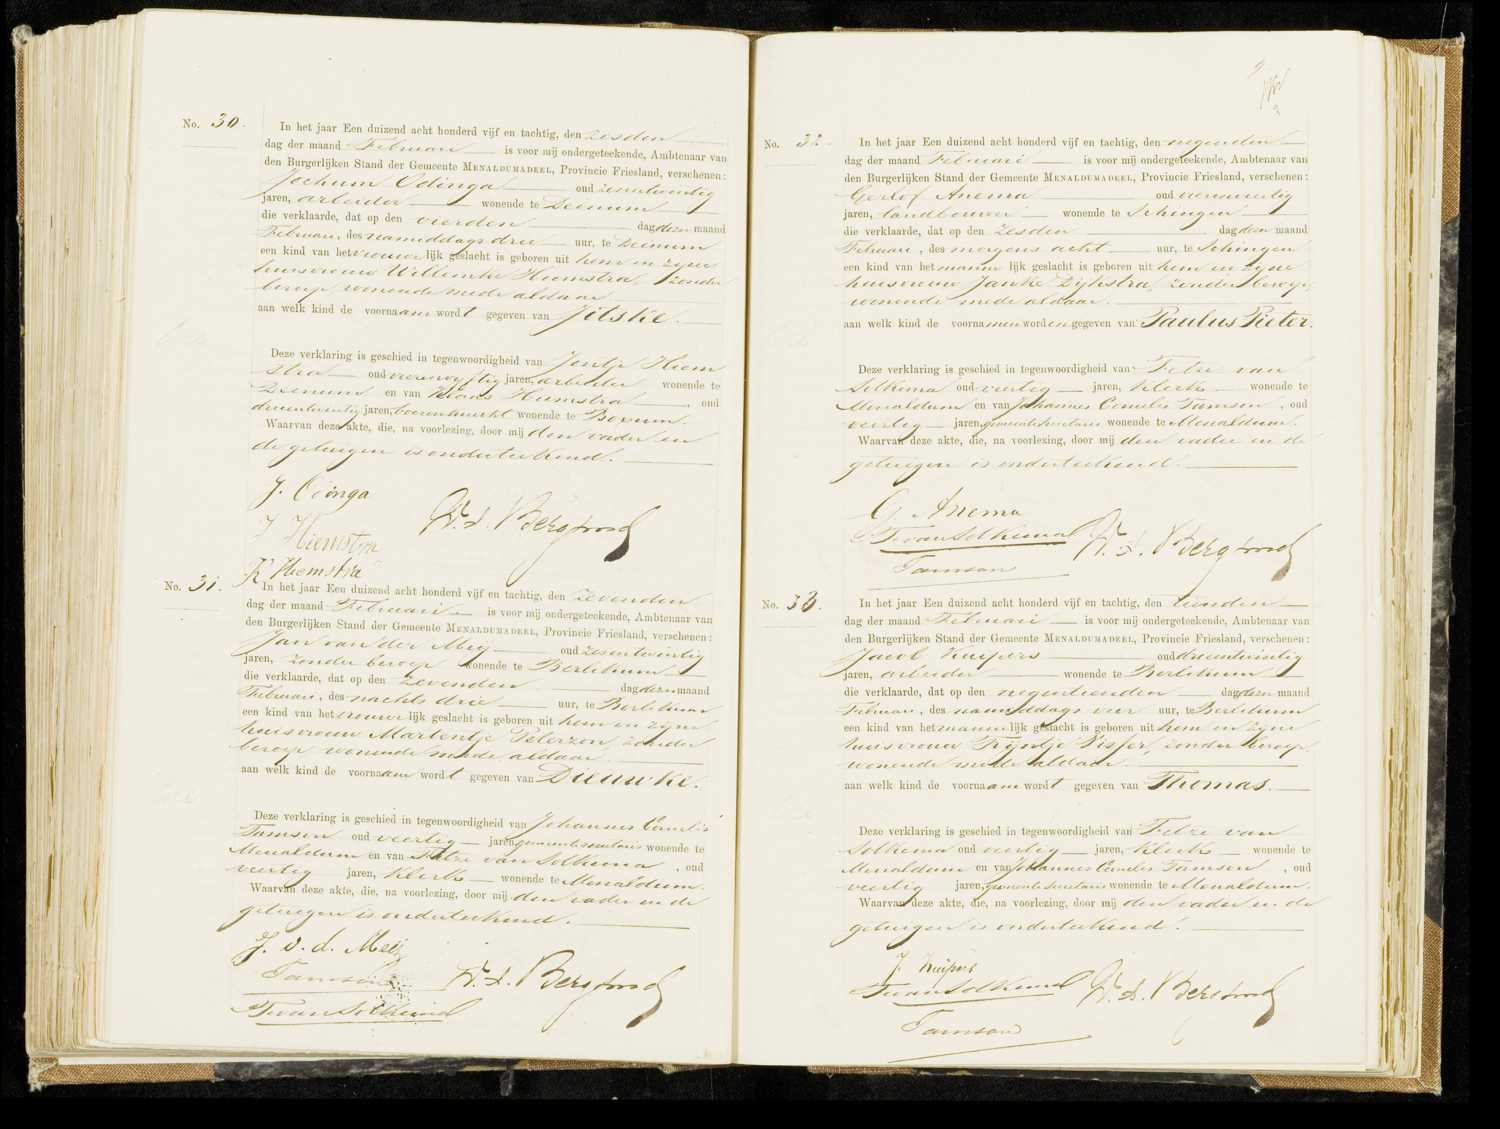 No. 30.
In het jaar Een duizend acht honderd vijf en tachtig, den zesden
dag der maand Februari is voor mij ondergeteekende, Ambtenaar van
den Burgerlijken Stand der Gemeente MENALDUMADEEL, Provincie Friesland, verschenen:
Jochum Odinga oud zesentwintig
jaren, arbeider wonende te Deinum
die verklaarde, dat op den vierden dag dezer maand
Februari, des namiddags drie uur, te Deinum
een kind van het vrouwelijk geslacht is geboren uit hem en zijne
huisvrouw Willemke Hiemstra, zonder
beroep, wonende mede aldaar
aan welk kind de voornaam wordt gegeven van Jitske.
Deze verklaring is geschied in tegenwoordigheid van Jentje Hiem
stra oud vierenvyftig jaren, arbeider wonende te
Deinum en van Klaas Hiemstra, oud
drieentwintig jaren, boerenknecht wonende te Boxum.
Waarvan deze akte, die, na voorlezing, door mij den vader en
de getuigen is onderteekend.
J. Odinga
J Hiemstra
W. A. Bergsma
K Hiemstra
No. 31.
In het jaar Een duizend acht honderd vijf en tachtig, den zevenden
dag der maand Februari is voor mij ondergeteekende, Ambtenaar van
den Burgerlijken Stand der Gemeente MENALDUMADEEL, Provincie Friesland, verschenen:
Jan van der Meij oud zesentwintig
jaren, zonder beroep wonende te Berlikum
die verklaarde, dat op den zevenden dag dezer maand
Februari, des nachts drie uur, te Berlikum
een kind van het vrouwelijk geslacht is geboren uit hem en zijne
huisvrouw Martentje Peterzon, zonder
beroep wonende mede aldaar.
aan welk kind de voornaam wordt gegeven van Dieuwke.
Deze verklaring is geschied in tegenwoordigheid van Johannes Cornelis
Tamson oud veertig jaren, gemeentesecretaris wonende te
Menaldum en van Fetze van Solkema, oud
veertig jaren, klerk wonende te Menaldum.
Waarvan deze akte, die, na voorlezing, door mij den vader en de
getuigen is onderteekend.
J. v. d. Meij
Tamson
F van Solkema
No. 32.
In het jaar Een duizend acht honderd vijf en tachtig, den negenden
dag der maand Februari is voor mij ondergeteekende, Ambtenaar van
den Burgerlijken Stand der Gemeente MENALDUMADEEL, Provincie Friesland, verschenen:
Gerlof Anema oud vierenveertig
jaren, landbouwer wonende te Schingen
die verklaarde, dat op den zesden dag dezer maand
Februari, des morgens acht uur, te Schingen
een kind van het mannelijk geslacht is geboren uit hem en zijne
huisvrouw Janke Dijkstra, zonder beroep,
wonende mede aldaar.
aan welk kind de voornamen worden gegeven van Paulus Pieter.
Deze verklaring is geschied in tegenwoordigheid van Fetze van
Solkema oud veertig jaren, klerk wonende te
Menaldum en van Johannes Cornelis Tamson, oud
veertig jaren, gemeentesecretaris wonende te Menaldum.
Waarvan deze akte, die, na voorlezing, door mij den vader en de
getuigen is onderteekend.
G Anema
F van Solkema
Tamson
No. 33.
In het jaar Een duizend acht honderd vijf en tachtig, den tienden
dag der maand Februari is voor mij ondergeteekende, Ambtenaar van
den Burgerlijken Stand der Gemeente MENALDUMADEEL, Provincie Friesland, verschenen:
Jacob Kuipers oud drieentwintig
jaren, arbeider wonende te Berlikum
die verklaarde, dat op den negentienden dag dezer maand
Februari, des namiddags vier uur, te Berlikum
een kind van het mannelijk geslacht is geboren uit hem en zijne
huisvrouw Trijntje Visser, zonder beroep,
wonende mede aldaar.
aan welk kind de voornaam wordt gegeven van Thomas.
Deze verklaring is geschied in tegenwoordigheid van Fetze van
Solkema oud veertig jaren, klerk wonende te
Menaldum en van Johannes Cornelis Tamson, oud
veertig jaren, gemeentesecretaris wonende te Menaldum.
Waarvan deze akte, die, na voorlezing, door mij den vader en de
getuigen is onderteekend.
J. Kuipers
F van Solkema
Tamson